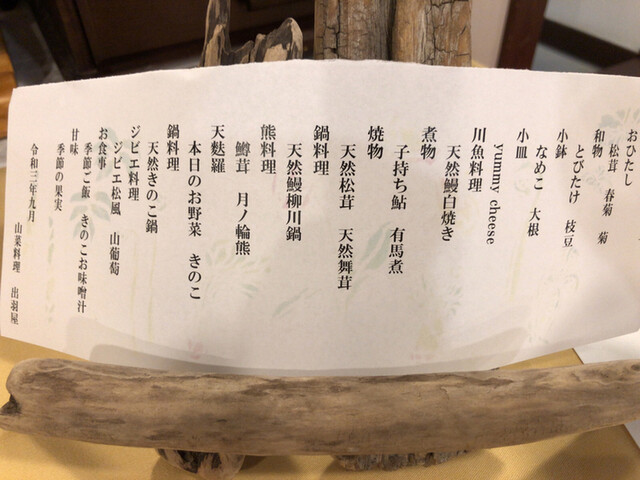 おひたし
松茸　春菊　菊
和物
とびたけ　枝豆
小鉢
なめこ　大根
小皿
yummy cheese
川魚料理
天然鰻白焼き
煮物
子持ち鮎　有馬煮
焼物
天然松茸　天然舞茸
鍋料理
天然鰻柳川鍋
熊料理
鱒茸　月ノ輪熊
天麩羅
本日のお野菜　きのこ
鍋料理
天然きのこ鍋
ジビエ料理
ジビエ松風　山葡萄
お食事
季節ご飯　きのこお味噌汁
甘味
季節の果実
令和三年九月
山菜料理　出羽屋